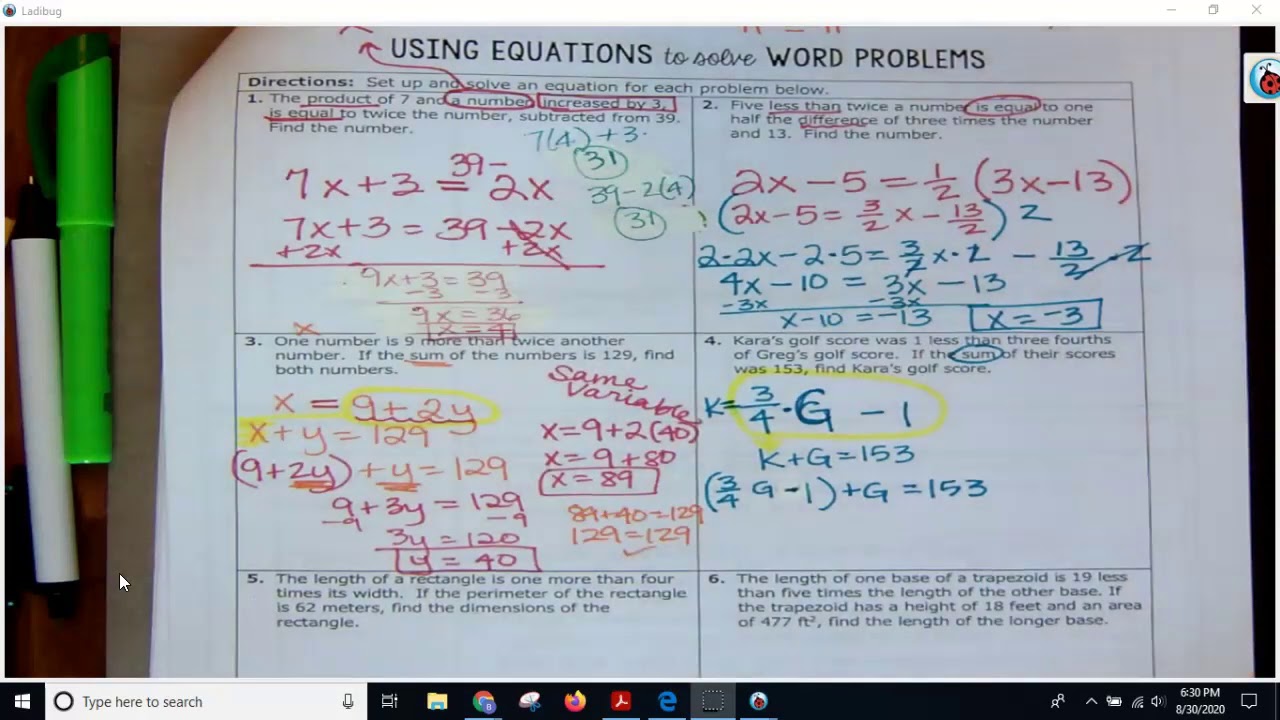 Ladibug
USING EQUATIONS to solve WORD PROBLEMS
Directions: Set up and solve an equation for each problem below.
1. The product of 7 and a number increased by 3,
is equal to twice the number, subtracted from 39.
Find the number.
7(4) + 3
31
39 - 2(4)
31
7x + 3 = 39 - 2x
7x + 3 = 39 - 2x
+2x +2x
9x + 3 = 39
-3 -3
9x = 36
x = 4
2. Five less than twice a number is equal to one
half the difference of three times the number
and 13. Find the number.
2x - 5 = 1/2 (3x - 13)
(2x - 5 = 3/2 x - 13/2) 2
2·2x - 2·5 = 3/2 x·2 - 13/2·2
4x - 10 = 3x - 13
-3x -3x
x - 10 = -13
x = -3
x
3. One number is 9 more than twice another
number. If the sum of the numbers is 129, find
both numbers.
x = 9 + 2y
x + y = 129
(9 + 2y) + y = 129
9 + 3y = 129
-9 -9
3y = 120
y = 40
Same
Variable
x = 9 + 2(40)
x = 9 + 80
x = 89
89 + 40 = 129
129 = 129
4. Kara's golf score was 1 less than three fourths
of Greg's golf score. If the sum of their scores
was 153, find Kara's golf score.
K = 3/4 · G - 1
K + G = 153
(3/4 G - 1) + G = 153
5. The length of a rectangle is one more than four
times its width. If the perimeter of the rectangle
is 62 meters, find the dimensions of the
rectangle.
6. The length of one base of a trapezoid is 19 less
than five times the length of the other base. If
the trapezoid has a height of 18 feet and an area
of 477 ft², find the length of the longer base.
Type here to search
6:30 PM
8/30/2020